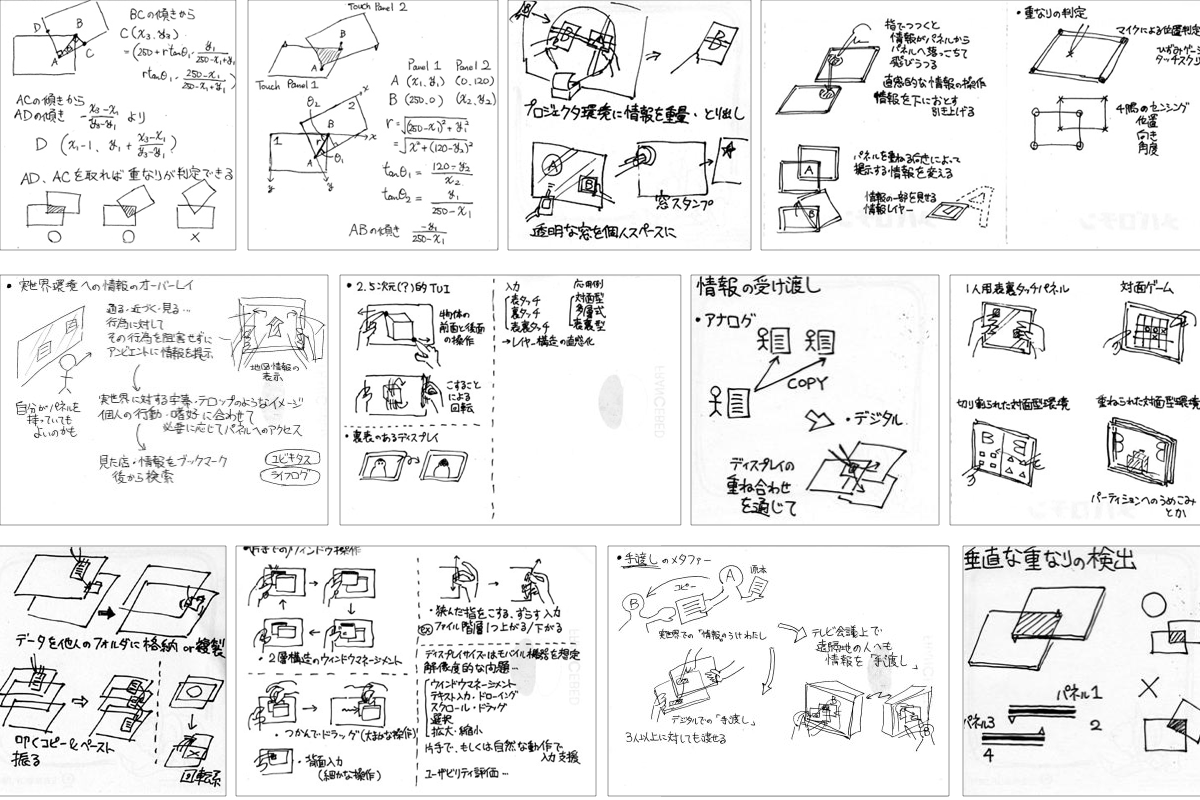 BCの傾きから
C(x₃, y₃)
D
B
C
A
ACの傾きから
ADの傾き - x₃-x₁/y₃-y₁ より
D (x₁-1, y₁ + x₃-x₁/y₃-y₁)
AD、ACを取れば重なりが判定できる
○ ○ ×
Touch Panel 2
B
A
Touch Panel 1
Panel 1 Panel 2
A (x₁, y₁) (0, 120)
B (250, 0) (x₂, y₂)
θ₂
x
2
B
1
r
x
A
θ₁
y
y
r = √(250-x₁)²+y₁²
tanθ₁ = 120-y₂/x₂
tanθ₂ = y₁/250-x₁
ABの傾き -y₁/250-x₁
B
B
プロジェクタ環境に情報を重畳・とり出し
A
B
窓スタンプ
透明な窓を個人スペースに
指でつつくと
情報がパネルから
パネルへ落っこちて
飛びうつる
直感的な情報の操作
情報を下におとす
引き上げる
パネルを重ねる向きによって
提示する情報を変える
A
B
情報の一部を見せる
情報レイヤー
・重なりの判定
マイクによる位置判定
ひずみゲージ
タッチスクリ
4隅のセンシング
位置
向き
角度
・実世界環境への情報のオーバーレイ
通る・近づく・見る…
行為に対して
その行為を阻害せずに
アンビエントに情報を提示
地図情報の
表示
自分がパネルを
持っていても
よいのかも
実世界に対する字幕・テロップのようなイメージ
個人の行動・嗜好に合わせて
必要に応じてパネルへのアクセス
見た店・情報をブックマーク
後から検索
ユビキタス
ライフログ
・2.5次元(?)的TUI
物体の
前面と後面
の操作
こすることに
よる
回転
・裏表のあるディスプレイ
入力
表タッチ
裏タッチ
表裏タッチ
応用例
対面型
多層式
表裏型
→レイヤー構造の直感化
情報の受け渡し
・アナログ
COPY
・デジタル
ディスプレイの
重ね合わせ
を通じて
1人用表裏タッチパネル
対面ゲーム
切り割られた対面型環境
重ねられた対面型環境
B
B
パーティションへのうめこみ
とか
データを他人のフォルダに格納 or 複製
叩くコピー&ペースト
振る
回転系
片手でのウィンドウ操作
・2層構造のウィンドウマネージメント
・つかんでドラッグ(大まかな操作)
・背面入力
(細かな操作)
・挟んだ指をこする、ずらす入力
ex ファイル階層1つ上がる/下がる
ディスプレイサイズはモバイル機器を想定
解像度的な問題…
ウインドウマネージメント
テキスト入力・ドローイング
スクロール・ドラッグ
選択
拡大・縮小
片手で、もしくは自然な動作で
入力支援
ユーザビリティ評価…
・手渡しのメタファー
B
コピー
A
原本
実世界での「情報のうけわたし」
デジタルでの「手渡し」
3人以上に対しても渡せる
テレビ会議上で
遠隔地の人へも
情報を「手渡し」
A
B
垂直な重なりの検出
○
×
パネル1
2
パネル3
4